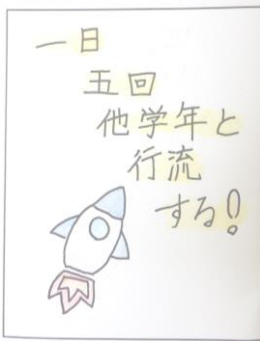 一日
五回
他学年と
行流
する!